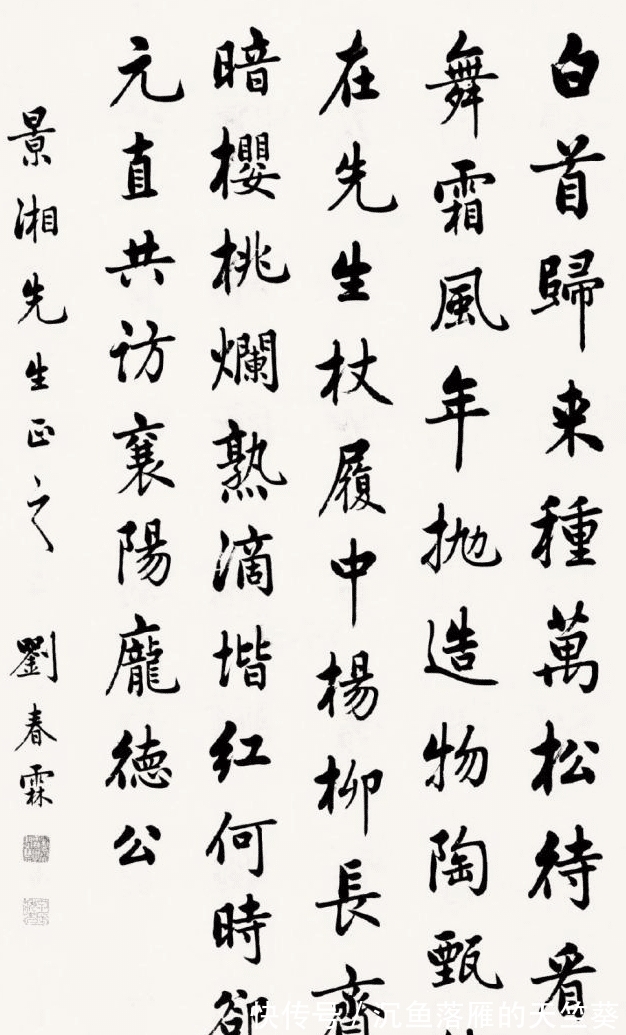 白首歸来種萬松待看
舞霜風年抛造物陶甄
在先生杖履中楊柳長齊
暗櫻桃爛熟滴堦红何時
元直共访襄陽龐德公
景湘先生正之 劉春霖
快传号 / 沉鱼落雁的天竺葵